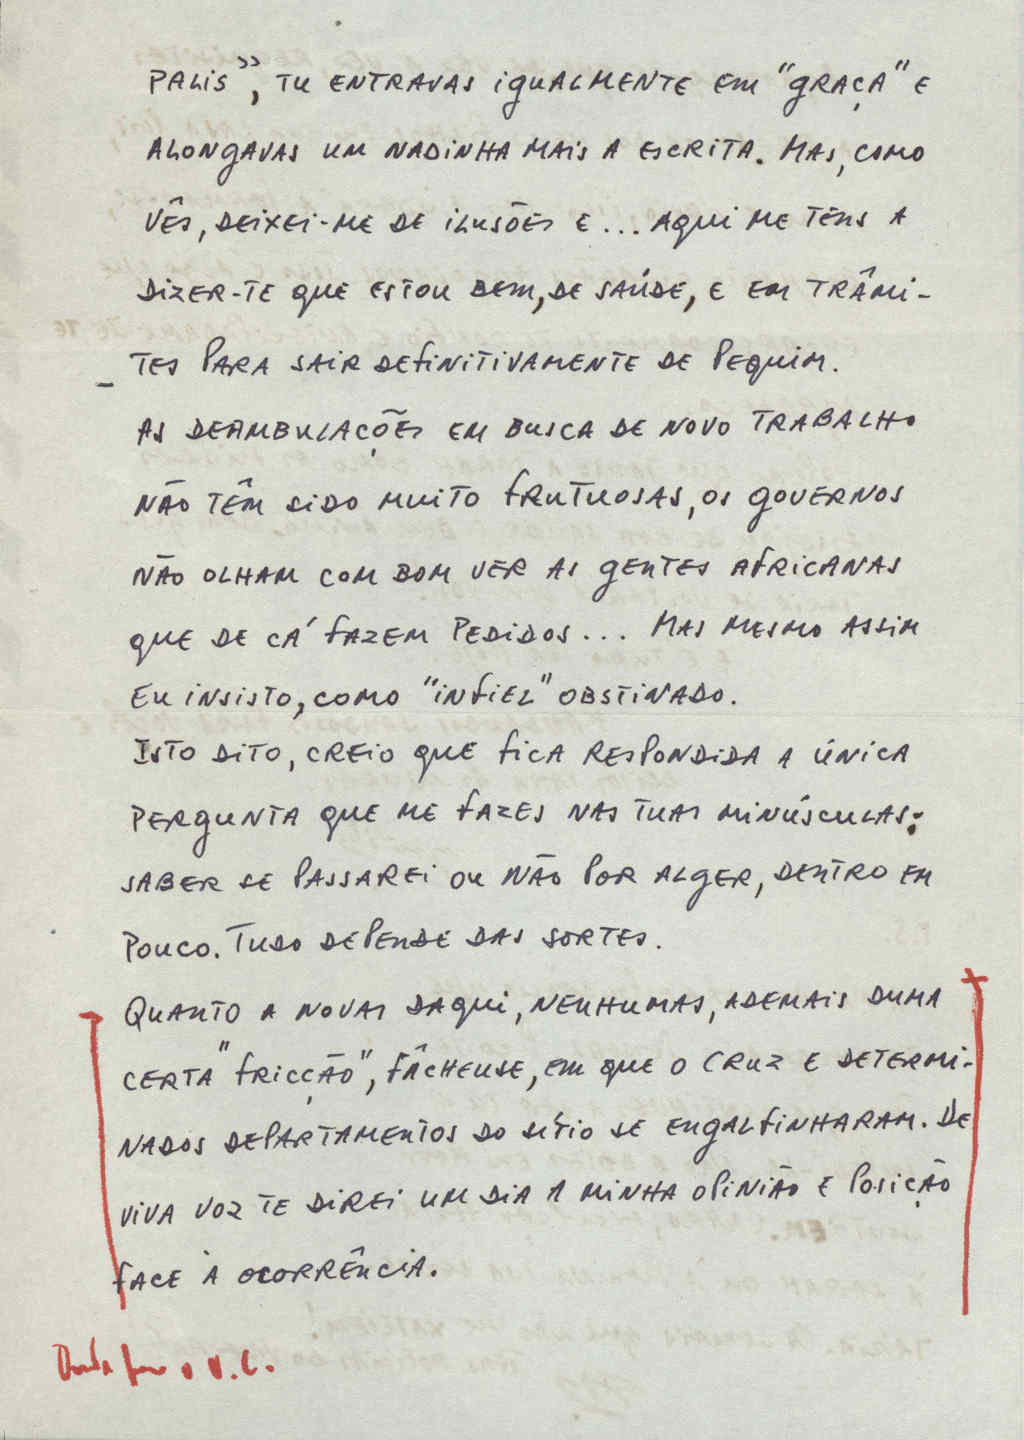 PALIS”, TU ENTRAVAS IGUALMENTE EM “GRAÇA” E
ALONGAVAS UM NADINHA MAIS A ESCRITA. MAS, COMO
VÊS, DEIXEI-ME DE ILUSÕES E ... AQUI ME TENS A
DIZER-TE QUE ESTOU BEM, DE SAÚDE, E EM TRÂMI-
TES PARA SAIR DEFINITIVAMENTE DE PEQUIM.
AS DEAMBULAÇÕES EM BUSCA DE NOVO TRABALHO
NÃO TÊM SIDO MUITO FRUTUOSAS, OS GOVERNOS
NÃO OLHAM COM BOM VER AS GENTES AFRICANAS
QUE DE CÁ FAZEM PEDIDOS... MAS MESMO ASSIM
EU INSISTO, COMO “INFIEL” OBSTINADO.
ISTO DITO, CREIO QUE FICA RESPONDIDA A ÚNICA
PERGUNTA QUE ME FAZES NAS TUAS MINÚSCULAS:
SABER SE PASSAREI OU NÃO POR ALGER, DENTRO EM
POUCO. TUDO DEPENDE DAS SORTES.
QUANTO A NOVAS DAQUI, NENHUMAS, ADEMAIS DUMA
CERTA “FRICÇÃO”, FÂCHEUSE, EM QUE O CRUZ E DETERMI-
NADOS DEPARTAMENTOS DO SÍTIO SE ENGALFINHARAM. DE
VIVA VOZ TE DIREI UM DIA A MINHA OPINIÃO E POSIÇÃO
FACE À OCORRÊNCIA.
V.C.